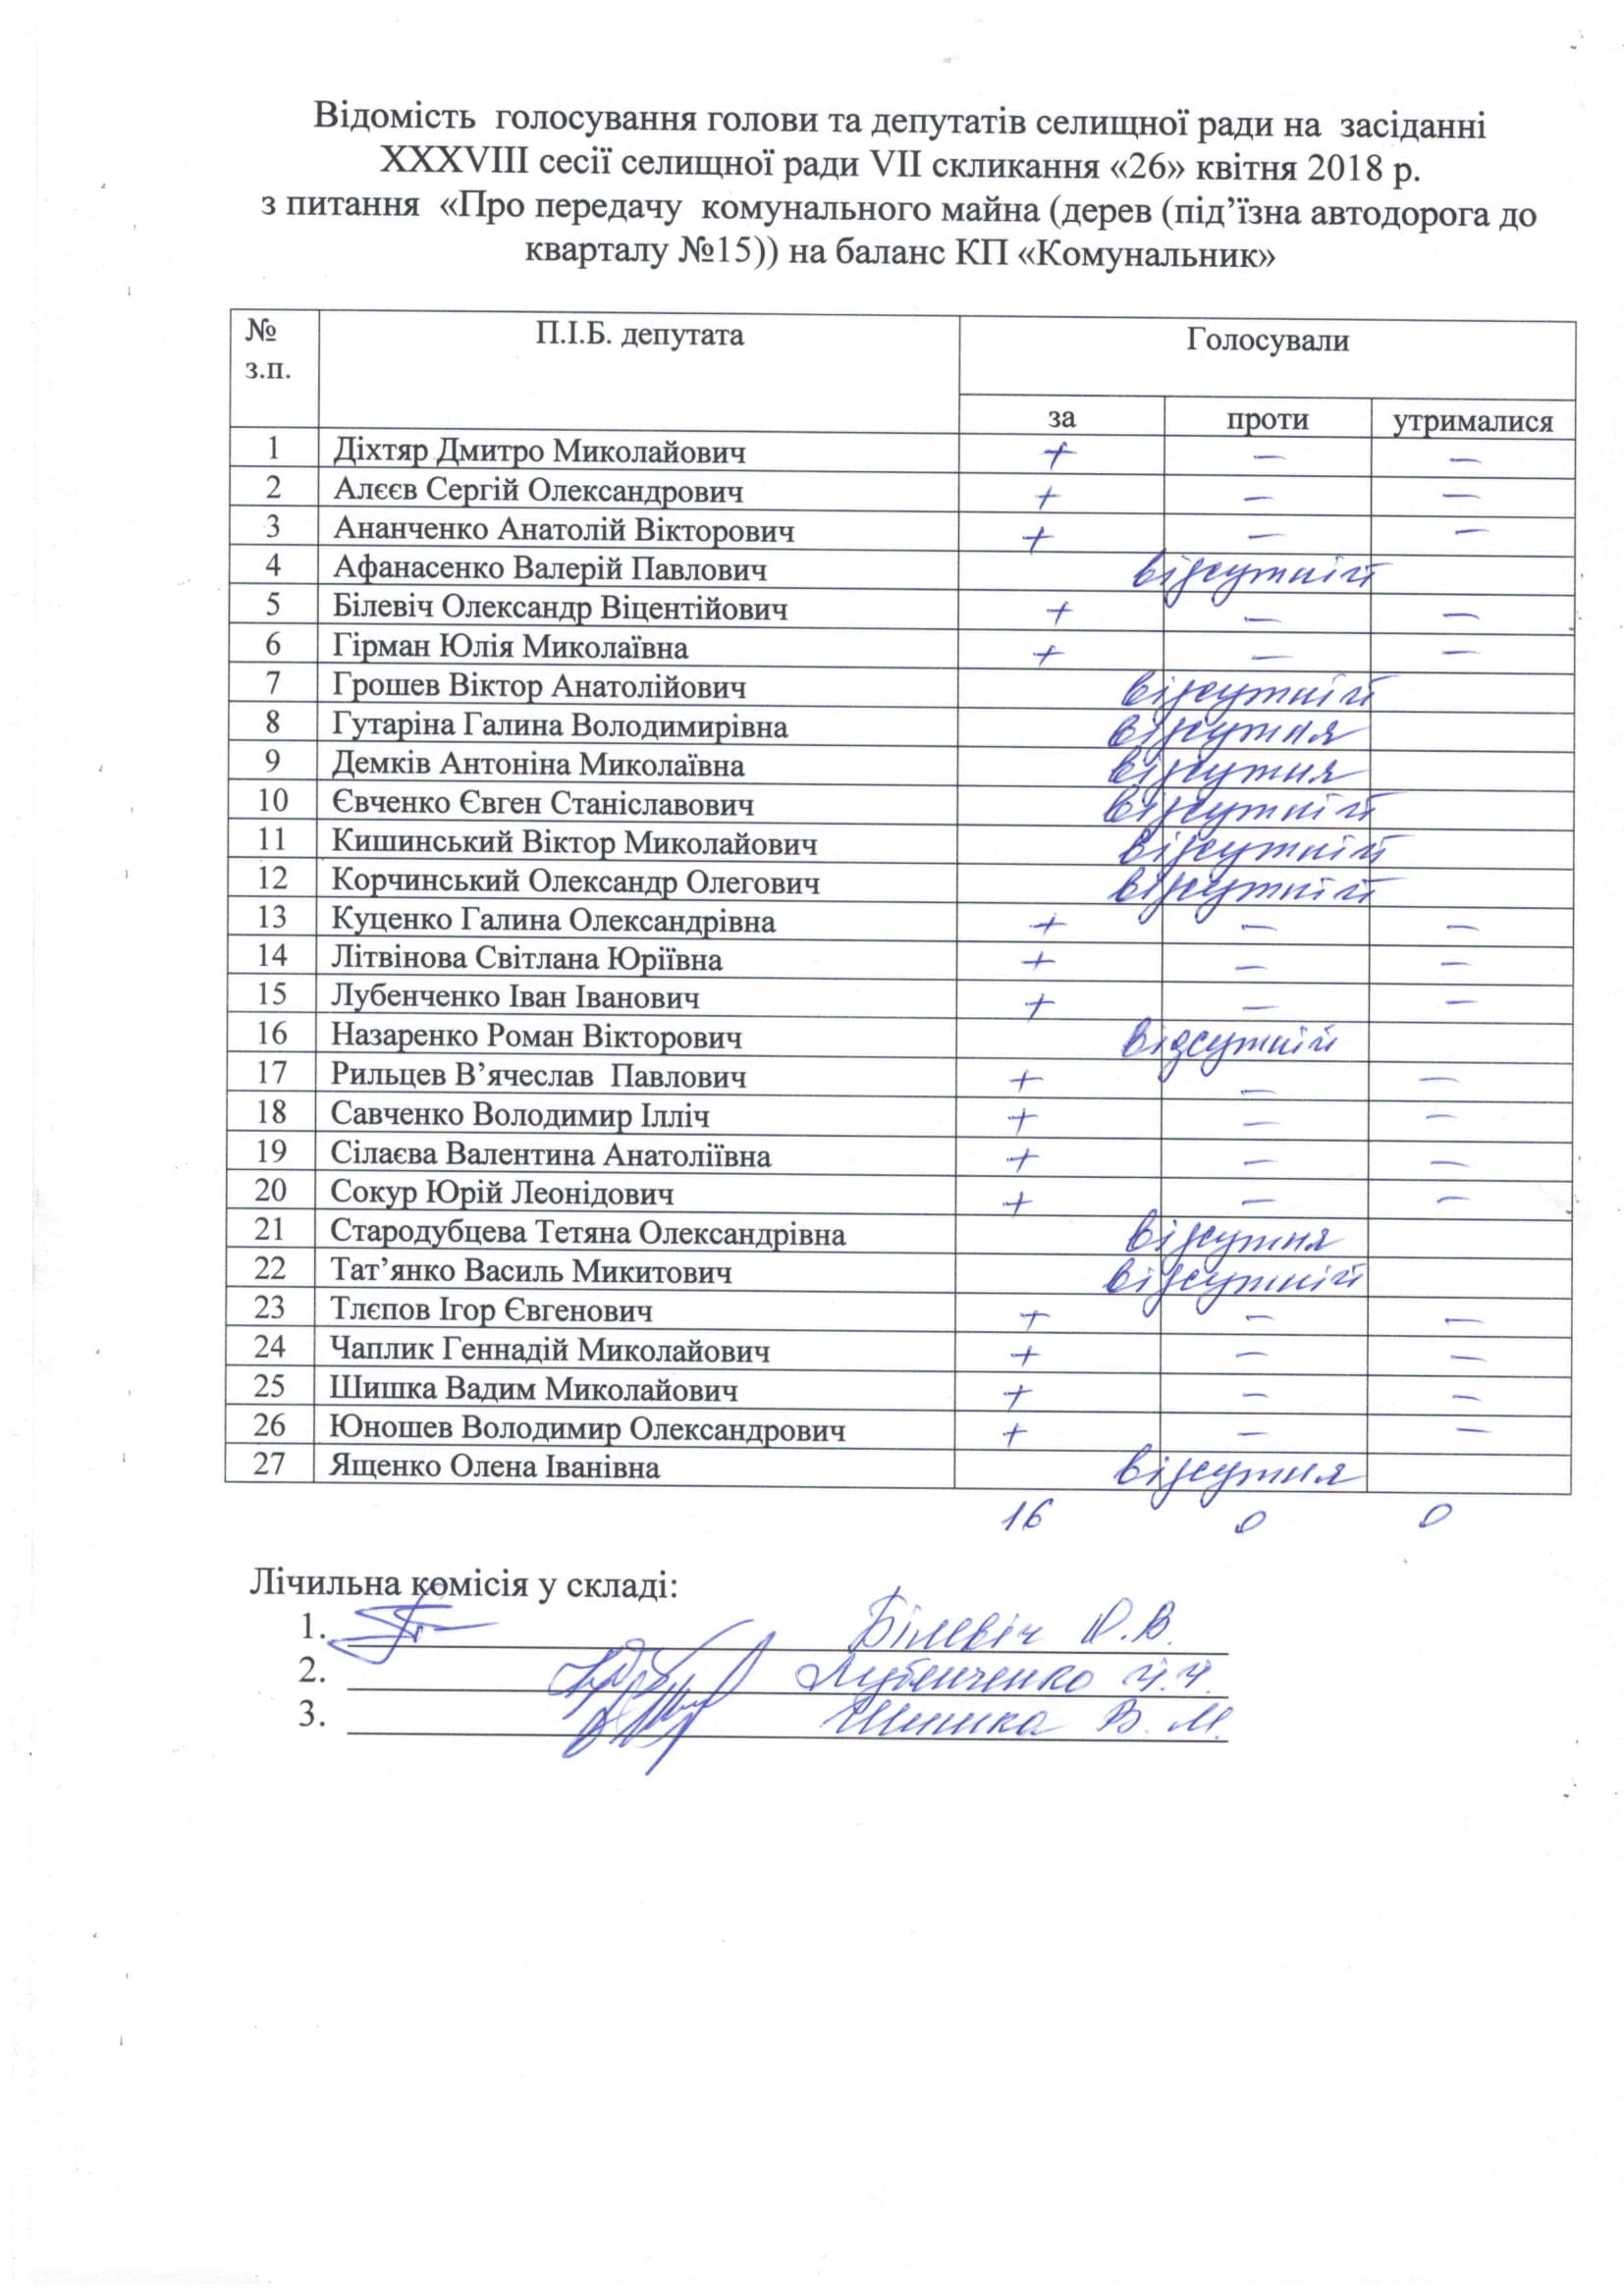 Відомість голосування голови та депутатів селищної ради на засіданні
XXXVIII сесії селищної ради VII скликання «26» квітня 2018 р.
з питання «Про передачу комунального майна (дерев (під’їзна автодорога до
кварталу №15)) на баланс КП «Комунальник»
№ з.п. П.І.Б. депутата Голосували
за проти утрималися
1 Діхтяр Дмитро Миколайович + – –
2 Алєєв Сергій Олександрович + – –
3 Ананченко Анатолій Вікторович + – –
4 Афанасенко Валерій Павлович відсутній
5 Білевіч Олександр Віцентійович + – –
6 Гірман Юлія Миколаївна + – –
7 Грошев Віктор Анатолійович відсутній
8 Гутаріна Галина Володимирівна відсутня
9 Демків Антоніна Миколаївна відсутня
10 Євченко Євген Станіславович відсутній
11 Кишинський Віктор Миколайович відсутній
12 Корчинський Олександр Олегович відсутній
13 Куценко Галина Олександрівна + – –
14 Літвінова Світлана Юріївна + – –
15 Лубенченко Іван Іванович + – –
16 Назаренко Роман Вікторович відсутній
17 Рильцев В’ячеслав Павлович + – –
18 Савченко Володимир Ілліч + – –
19 Сілаєва Валентина Анатоліївна + – –
20 Сокур Юрій Леонідович + – –
21 Стародубцева Тетяна Олександрівна відсутня
22 Тат’янко Василь Микитович відсутній
23 Тлєпов Ігор Євгенович + – –
24 Чаплик Геннадій Миколайович + – –
25 Шишка Вадим Миколайович + – –
26 Юношев Володимир Олександрович + – –
27 Ященко Олена Іванівна відсутня
16 0 0
Лічильна комісія у складі:
1. Білевіч О.В.
2. Лубенченко І.І.
3. Шишка В.М.